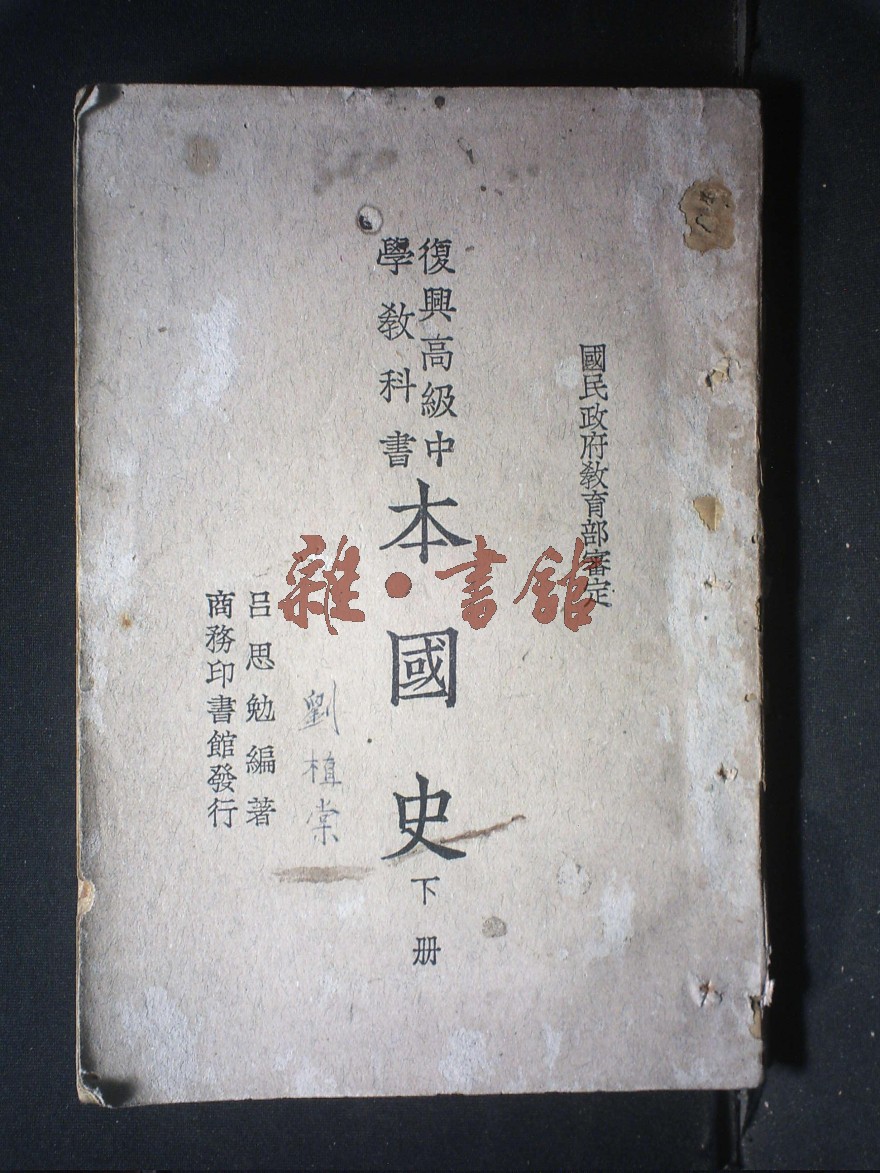 國民政府教育部審定
復興高級中
學教科書
本國史
下册
劉植棠
呂思勉編著
商務印書館發行
雜·書館